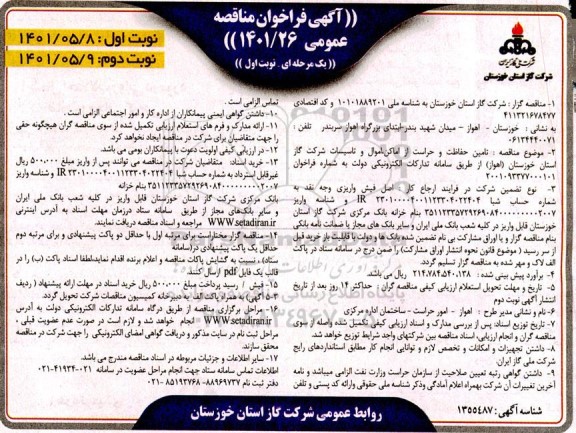 ((آگهی فراخوان مناقصه
عمومی ۱۴۰۱/۲۶))
((یک مرحله ای _ نوبت اول))
نوبت اول : ۱۴۰۱/۰۵/۸
نوبت دوم: ۱۴۰۱/۰۵/۹
شرکت ملی گاز ایران
شرکت گاز استان خوزستان
۱- مناقصه گزار : شرکت گاز استان خوزستان به شناسه ملی ۱۰۱۰۱۸۸۹۲۰۱ و کد اقتصادی
۴۱۱۳۲۱۶۷۸۴۷۷
به نشانی : خوزستان - اهواز – میدان شهید بندر-ابتدای بزرگراه اهواز -سربندر تلفن :
۰۶۱۳۴۴۴۰۰۷۱
۲- موضوع مناقصه : تامین حفاظت و حراست از اماکن،اموال و تاسیسات شرکت گاز
استان خوزستان (اهواز) از طریق سامانه تدارکات الکترونیکی دولت به شماره فراخوان
۲۰۰۱۰۹۳۳۷۷۰۰۰۱۰۱
۳- نوع تضمین شرکت در فرایند ارجاع کار : اصل فیش واریزی وجه نقد به
حساب شماره شبا IR ۲۳۰۱۰۰۰۰۴۰۰۱۱۲۳۴۰۴۰۲۲۴۰۴ و شناسه واریز
۳۵۱۱۲۳۳۵۷۲۹۲۶۹۰۸۴۰۰۰۰۰۰۰۰۰۲۰۰۷ بنام خزانه بانک مرکزی شرکت گاز استان
خوزستان قابل واریز در کلیه شعب بانک ملی ایران و سایر بانک های مجاز یا ضمانت نامه بانکی
بنام مناقصه گزار و یا اوراق مشارکت بی نام تضمین شده
۴- برآورد پیش بینی شده : ۲۱۴.۷۸۴.۵۴۰.۱۳۸ ریال می باشد.
۵- تاریخ و مهلت تحویل استعلام ارزیابی کیفی مناقصه گران : حداکثر ۱۴ روز بعد از تاریخ
انتشار آگهی نوبت دوم
۶- نام و نشانی مدیر طرح : اهواز - امور حراست – ساختمان اداره مرکزی
۷- تاریخ توزیع اسناد: پس از بررسی مدارک و اسناد ارزیابی کیفی تکمیل شده واصله از سوی
مناقصه گران و انجام ارزیابی، اسناد مناقصه بین شرکتهای واجد شرایط توزیع خواهد شد.
۸- داشتن تجهیزات و امکانات و تخصص لازم و توانایی انجام کار مطابق استانداردهای رایج
شرکت ملی گاز ایران.
۹- داشتن گواهی رتبه تعیین صلاحیت از سازمان حراست وزارت نفت الزامی میباشد و نامه
آخرین تغییرات آن شرکت بهمراه اعلام آمادگی وذکر شناسه ملی حقوقی وارائه کد پستی و تلفن
تماس الزامی است.
۱۰- داشتن گواهی ایمنی پیمانکاران از اداره کار و امور اجتماعی الزامی است.
۱۱- ارائه مدارک و فرم های استعلام ارزیابی تکمیل شده از سوی مناقصه گران هیچگونه حقی
را جهت متقاضیان برای شرکت در مناقصه ایجاد نخواهد کرد.
۱۲- در ارزیابی کیفی اولویت دعوت با پیمانکاران بومی می باشد.
۱۳- خرید اسناد: متقاضیان شرکت در مناقصه می توانند پس از واریز مبلغ ۵۰۰,۰۰۰ ریال
غیرقابل استرداد به شماره حساب شبا IR ۲۳۰۱۰۰۰۰۴۰۰۱۱۲۳۴۰۴۰۲۲۴۰۴ و شناسه واریز
۳۵۱۱۲۳۳۵۷۲۹۲۶۹۰۸۴۰۰۰۰۰۰۰۰۰۲۰۰۷ بنام خزانه
بانک مرکزی شرکت گاز استان خوزستان قابل واریز در کلیه شعب بانک ملی ایران
و سایر بانک‌های مجاز از طریق سامانه ستاد درزمان مهلت اسناد به آدرس اینترنتی
WWW.setadiran.ir مراجعه و اسناد دریافت نمایند.
۱۴- مناقصه گزار مختاراست برای مرتبه اول با حداقل دو پاکت پیشنهادی و برای مرتبه دوم
حداقل یک پاکت پیشنهادی در(سامانه
ستاد)، نسبت به گشایش پاکات مناقصه و اعلام برنده اقدام نماید.لطفا اسناد پاکت (ب) را در
قالب یک فایل pdf ارسال کنند.
۱۵- فیش / رسید پرداخت مبلغ ۵۰۰,۰۰۰ ریال خرید اسناد در مهلت ارائه پیشنهاد (ردیف
۳-۵ آگهی) به همراه پاکت الف به دبیرخانه کمیسیون مناقصات شرکت تحویل گردد.
۱۶- مراحل برگزاری مناقصه از طریق درگاه سامانه تدارکات الکترونیکی دولت به آدرس
WWW.setadiran.ir انجام خواهد شد و لازم است در صورت عدم عضویت قبلی ،
مراحل ثبت نام در سایت مذکور و دریافت گواهی امضای الکترونیکی را جهت شرکت در مناقصه
محقق سازند.
۱۷- سایر اطلاعات و جزئیات مربوطه در اسناد مناقصه مندرج می باشد.
اطلاعات تماس سامانه ستاد جهت انجام مراحل عضویت در سامانه ۴۱۹۳۴-۰۲۱
دفتر ثبت نام ۸۸۹۶۹۷۳۷ - ۸۵۱۹۳۷۶۸-۰۲۱
شناسه آگهی: ۱۳۵۵۴۸۷
روابط عمومی شرکت گاز استان خوزستان